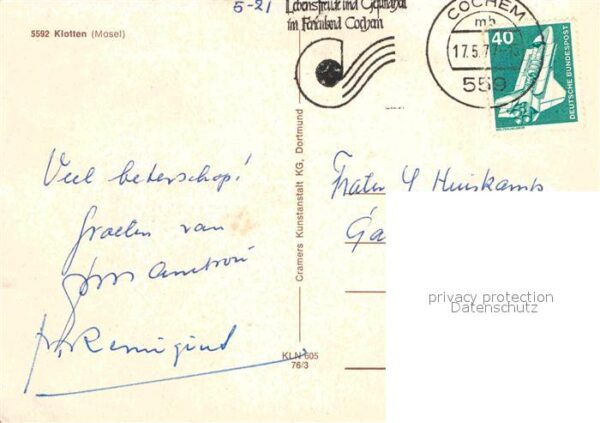 5-21
5592 Klotten (Mosel)
Lebensfreude und Gesundheit
im Ferienland Cochem
COCHEM
mb
17.5.77
559
40
DEUTSCHE BUNDESPOST
Veel beterschap!
Groeten van
fr. Remigius
Cramers Kunstanstalt KG, Dortmund
KLN 605
76/3
Frater
privacy protection
Datenschutz